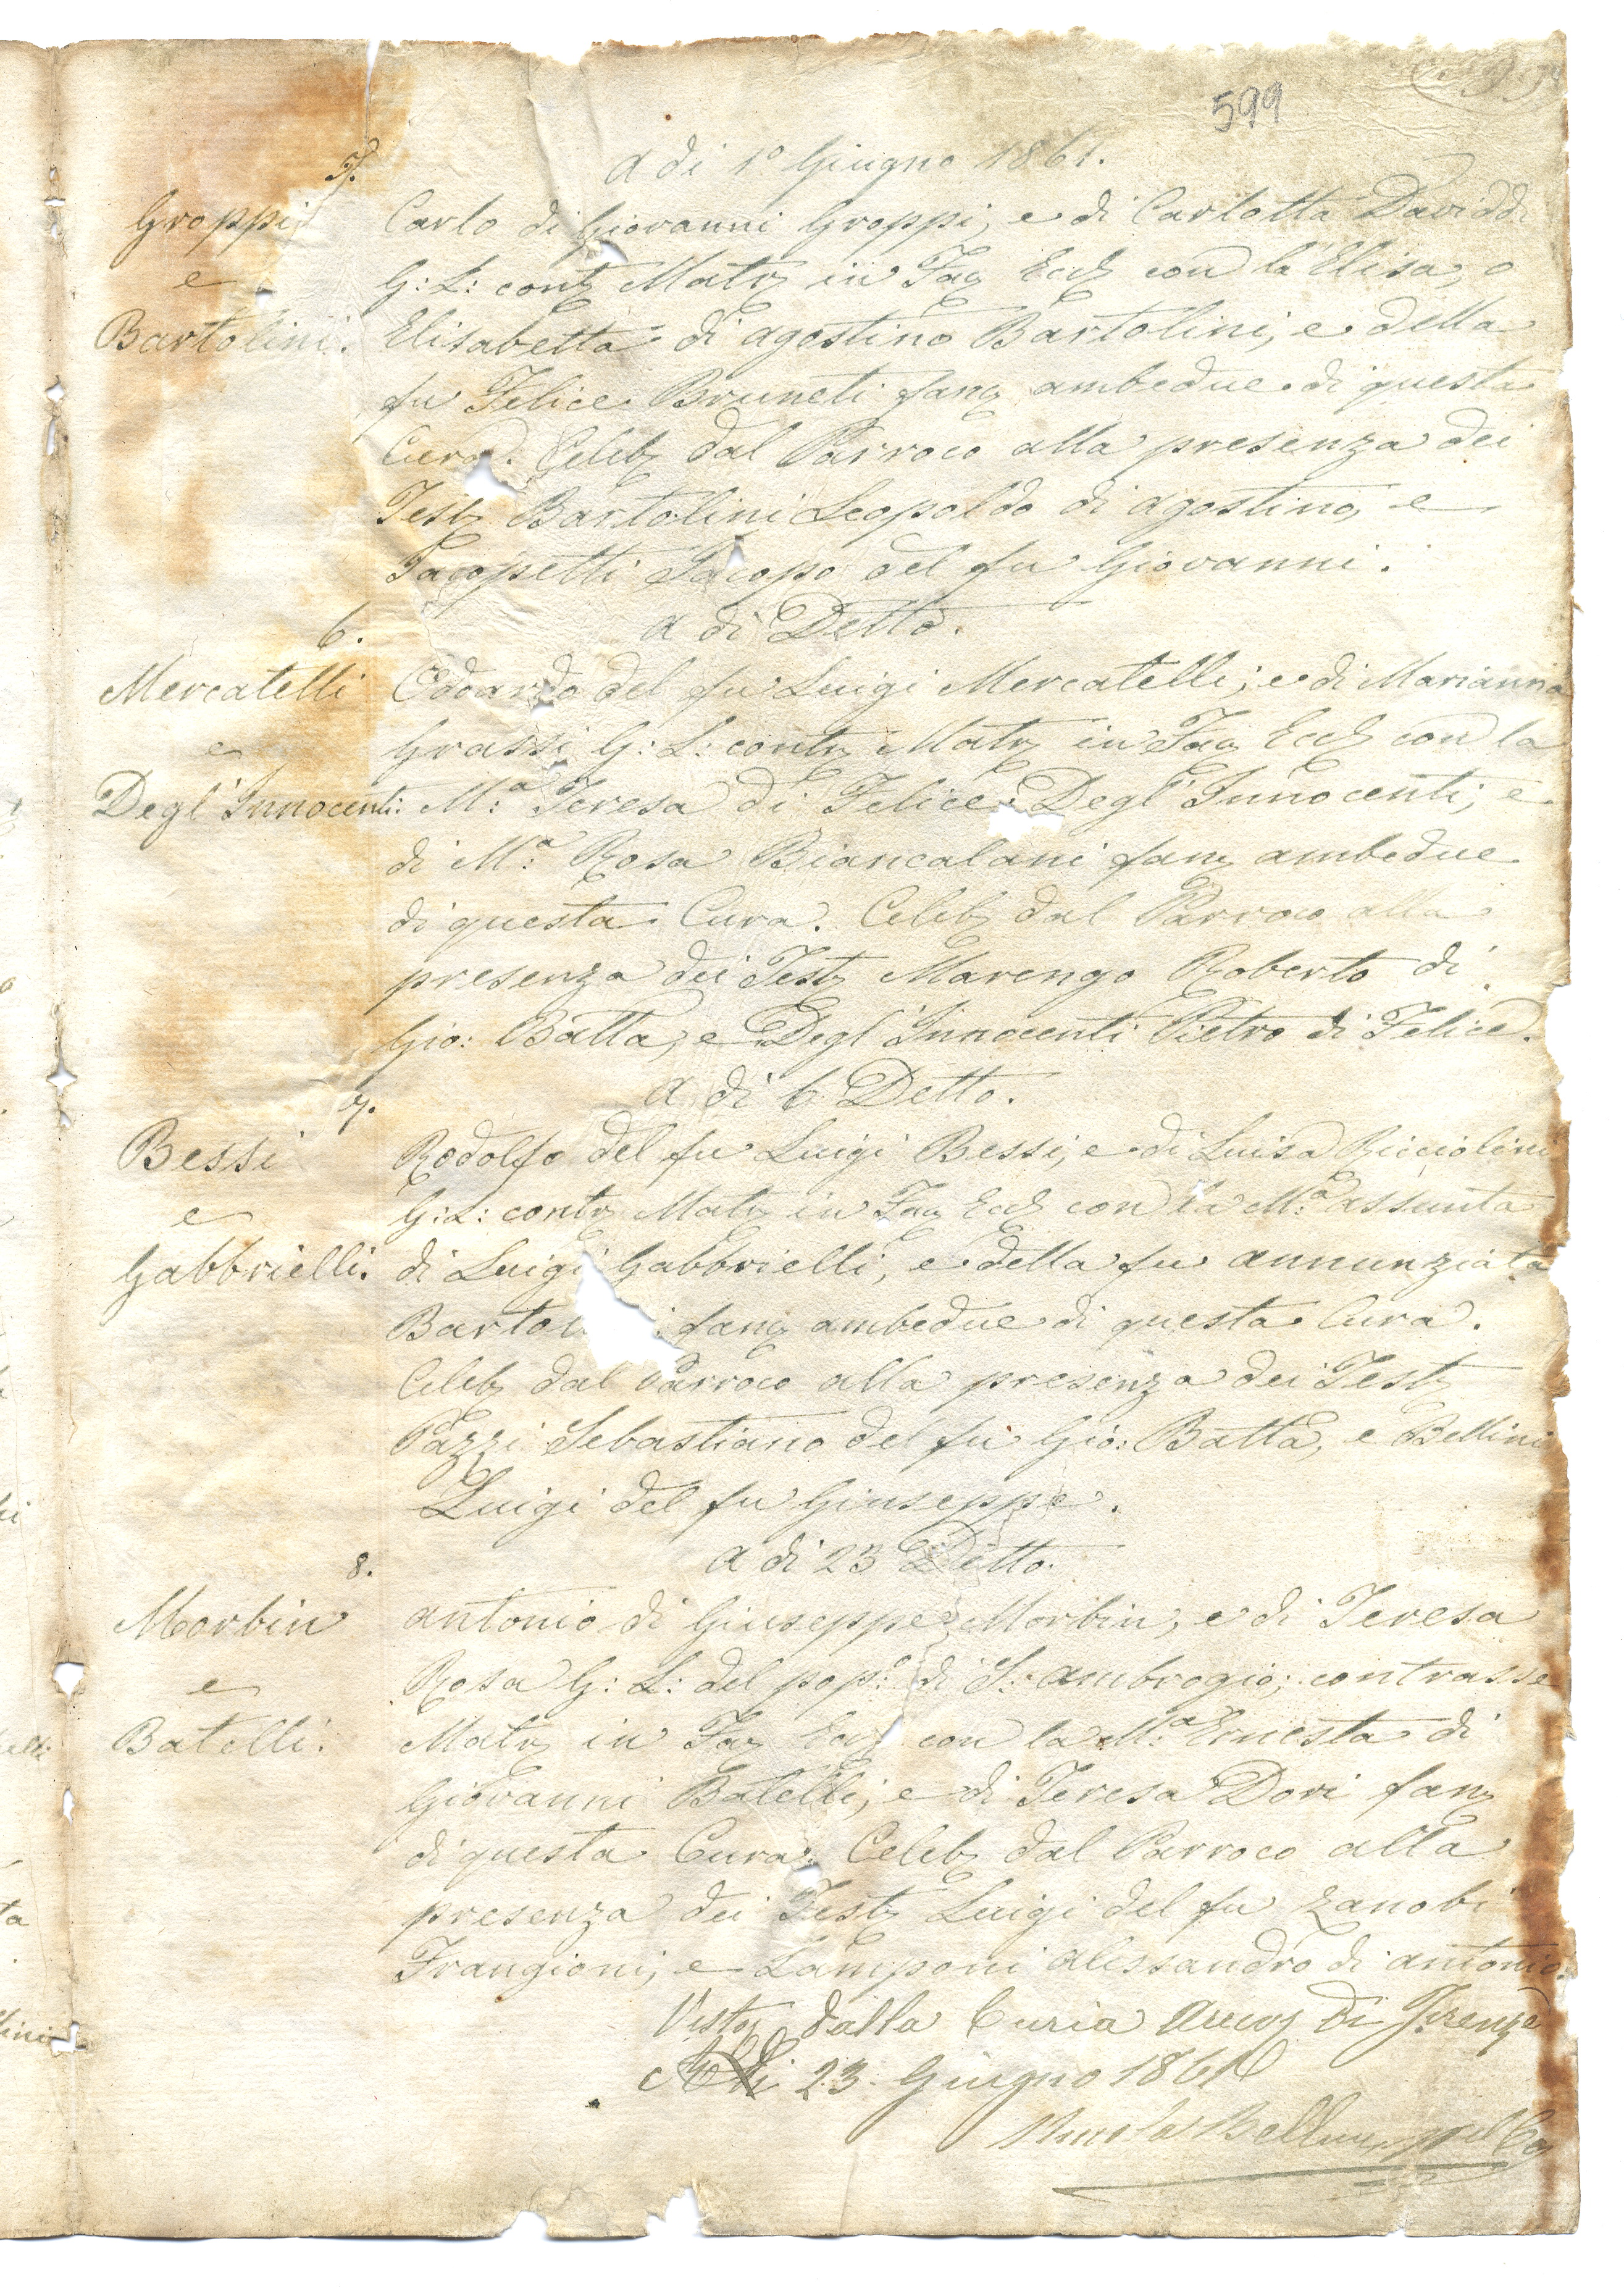 599
A di 1º Giugno 1861.
5.
Groppi
e
Bartolini.
Carlo di Giovanni Groppi, e di Carlotta Daviddi
G: L: contr Matr in Fac Eccl con la Elisa, o
Elisabetta di Agostino Bartolini, e della
fu Felice Bruneti fanc ambedue di questa
Cura. Celeb dal Parroco alla presenza dei
Test Bartolini Leopoldo di Agostino, e
Jacopetti Jacopo del fu Giovanni.
6.
A di Detto.
Mercatelli
e
Degl'Innocenti:
Edoardo del fu Luigi Mercatelli; e di Marianna
Grassi G: L: contr Matr in Fac Eccl con la
M:ª Teresa di Felice Degl'Innocenti; e
di M:ª Rosa Biancalani fanc ambedue
di questa Cura. Celeb dal Parroco alla
presenza dei Test Marengo Roberto di
Gio: Batta, e Degl'Innocenti Pietro di Felice.
7.
A di 6 Detto.
Bessi
e
Gabbrielli.
Rodolfo del fu Luigi Bessi, e di Luisa Ricciolini
G: L: contr Matr in Fac Eccl con la M:ª Assunta
di Luigi Gabbrielli, e della fu Annunziata
fanc ambedue di questa Cura.
Celeb dal Parroco alla presenza dei Test
Pazzi Sebastiano del fu Gio: Batta, e Bellini
Luigi del fu Giuseppe.
8.
A di 23 Detto.
Morbin
e
Batelli.
Antonio di Giuseppe Morbin, e di Teresa
Rosa G: L: del pop:º di S: Ambrogio; contrasse
Matr in Fac Eccl con la M:ª Ernesta di
Giovanni Batelli; e di Teresa Dori fanc
di questa Cura. Celeb dal Parroco alla
presenza dei Test Luigi del fu Zanobi
Frangioni; e Lamponi Alessandro di Antonio.
Visto dalla Curia Arciv di Firenze
23. Giugno 1861